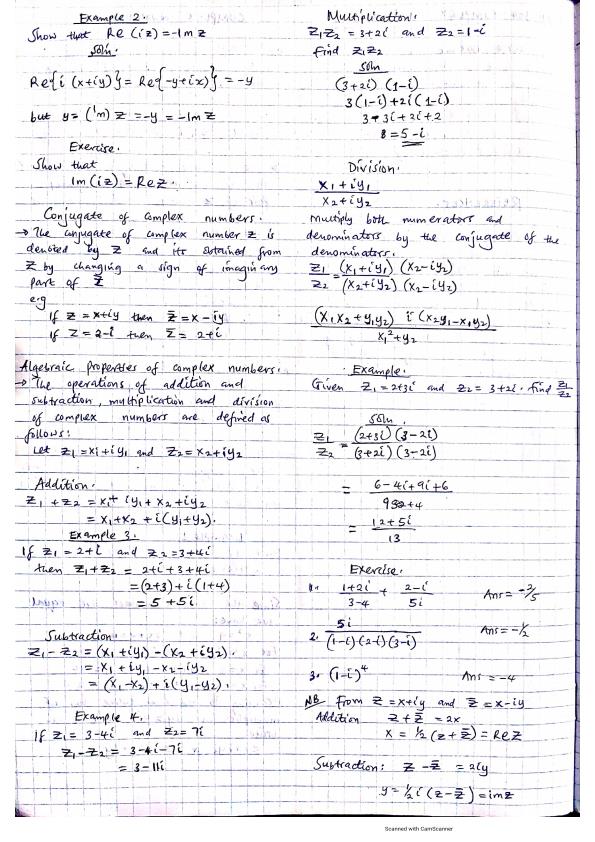 Example 2.
Show that Re (iz) = -Im z
Soln.
Re{i (x+iy)} = Re{-y+ix} = -y
but y = (Im) z = -y = -Im z
Exercise.
Show that
Im (iz) = Re z.
Conjugate of complex numbers.
→ The conjugate of complex number z is
denoted by z̅ and its obtained from
z by changing a sign of imaginary
part of z̅
e.g
If z = x+iy then z̅ = x - iy
if z = 2-i then z̅ = 2+i
Algebraic properties of complex numbers.
→ The operations of addition and
subtraction, multiplication and division
of complex numbers are defined as
follows:
Let z₁ = x₁+iy₁ and z₂ = x₂+iy₂
Addition.
z₁ + z₂ = x₁+ iy₁ + x₂ + iy₂
= x₁+x₂ + i(y₁+y₂).
Example 3.
If z₁ = 2+i and z₂ = 3+4i
then z₁+z₂ = 2+i + 3+4i
= (2+3)+i(1+4)
= 5 + 5i
Subtraction.
z₁ - z₂ = (x₁+iy₁) - (x₂ + iy₂).
= x₁ + iy₁ - x₂ - iy₂
= (x₁-x₂) + i(y₁-y₂).
Example 4.
If z₁ = 3-4i and z₂ = 7i
z₁-z₂ = 3-4i-7i
= 3-11i
Multiplication.
z₁z₂ = 3+2i and z₂ = 1-i
find z₁z₂
Soln
(3+2i) (1-i)
3(1-i)+2i(1-i)
3-3i+2i+2
= 5-i
Division.
x₁+iy₁
x₂+iy₂
Multiply both numerators and
denominators by the conjugate of the
denominators.
z₁ = (x₁+iy₁) (x₂-iy₂)
z₂ (x₂+iy₂) (x₂-iy₂)
(x₁x₂+y₁y₂) i(x₂y₁-x₁y₂)
x₁²+y₂
Example.
Given z₁ = 2+3i and z₂ = 3+2i. find z₁/z₂
Soln
z₁ = (2+3i) (3-2i)
z₂ (3+2i) (3-2i)
= 6-4i+9i+6
+4
= 12+5i
13
Exercise.
1. 1+2i + 2-i Ans = -2/5
3-4 5i
2. 5i Ans = -1/2
(1-i)(2-i)(3-i)
3. (1-i)⁴ Ans = -4
NB from z = x+iy and z̅ = x-iy
Addition z + z̅ = 2x
x = 1/2 (z+z̅) = Re z
Subtraction: z - z̅ = 2iy
y = 1/2 i (z-z̅) = im z
Scanned with CamScanner